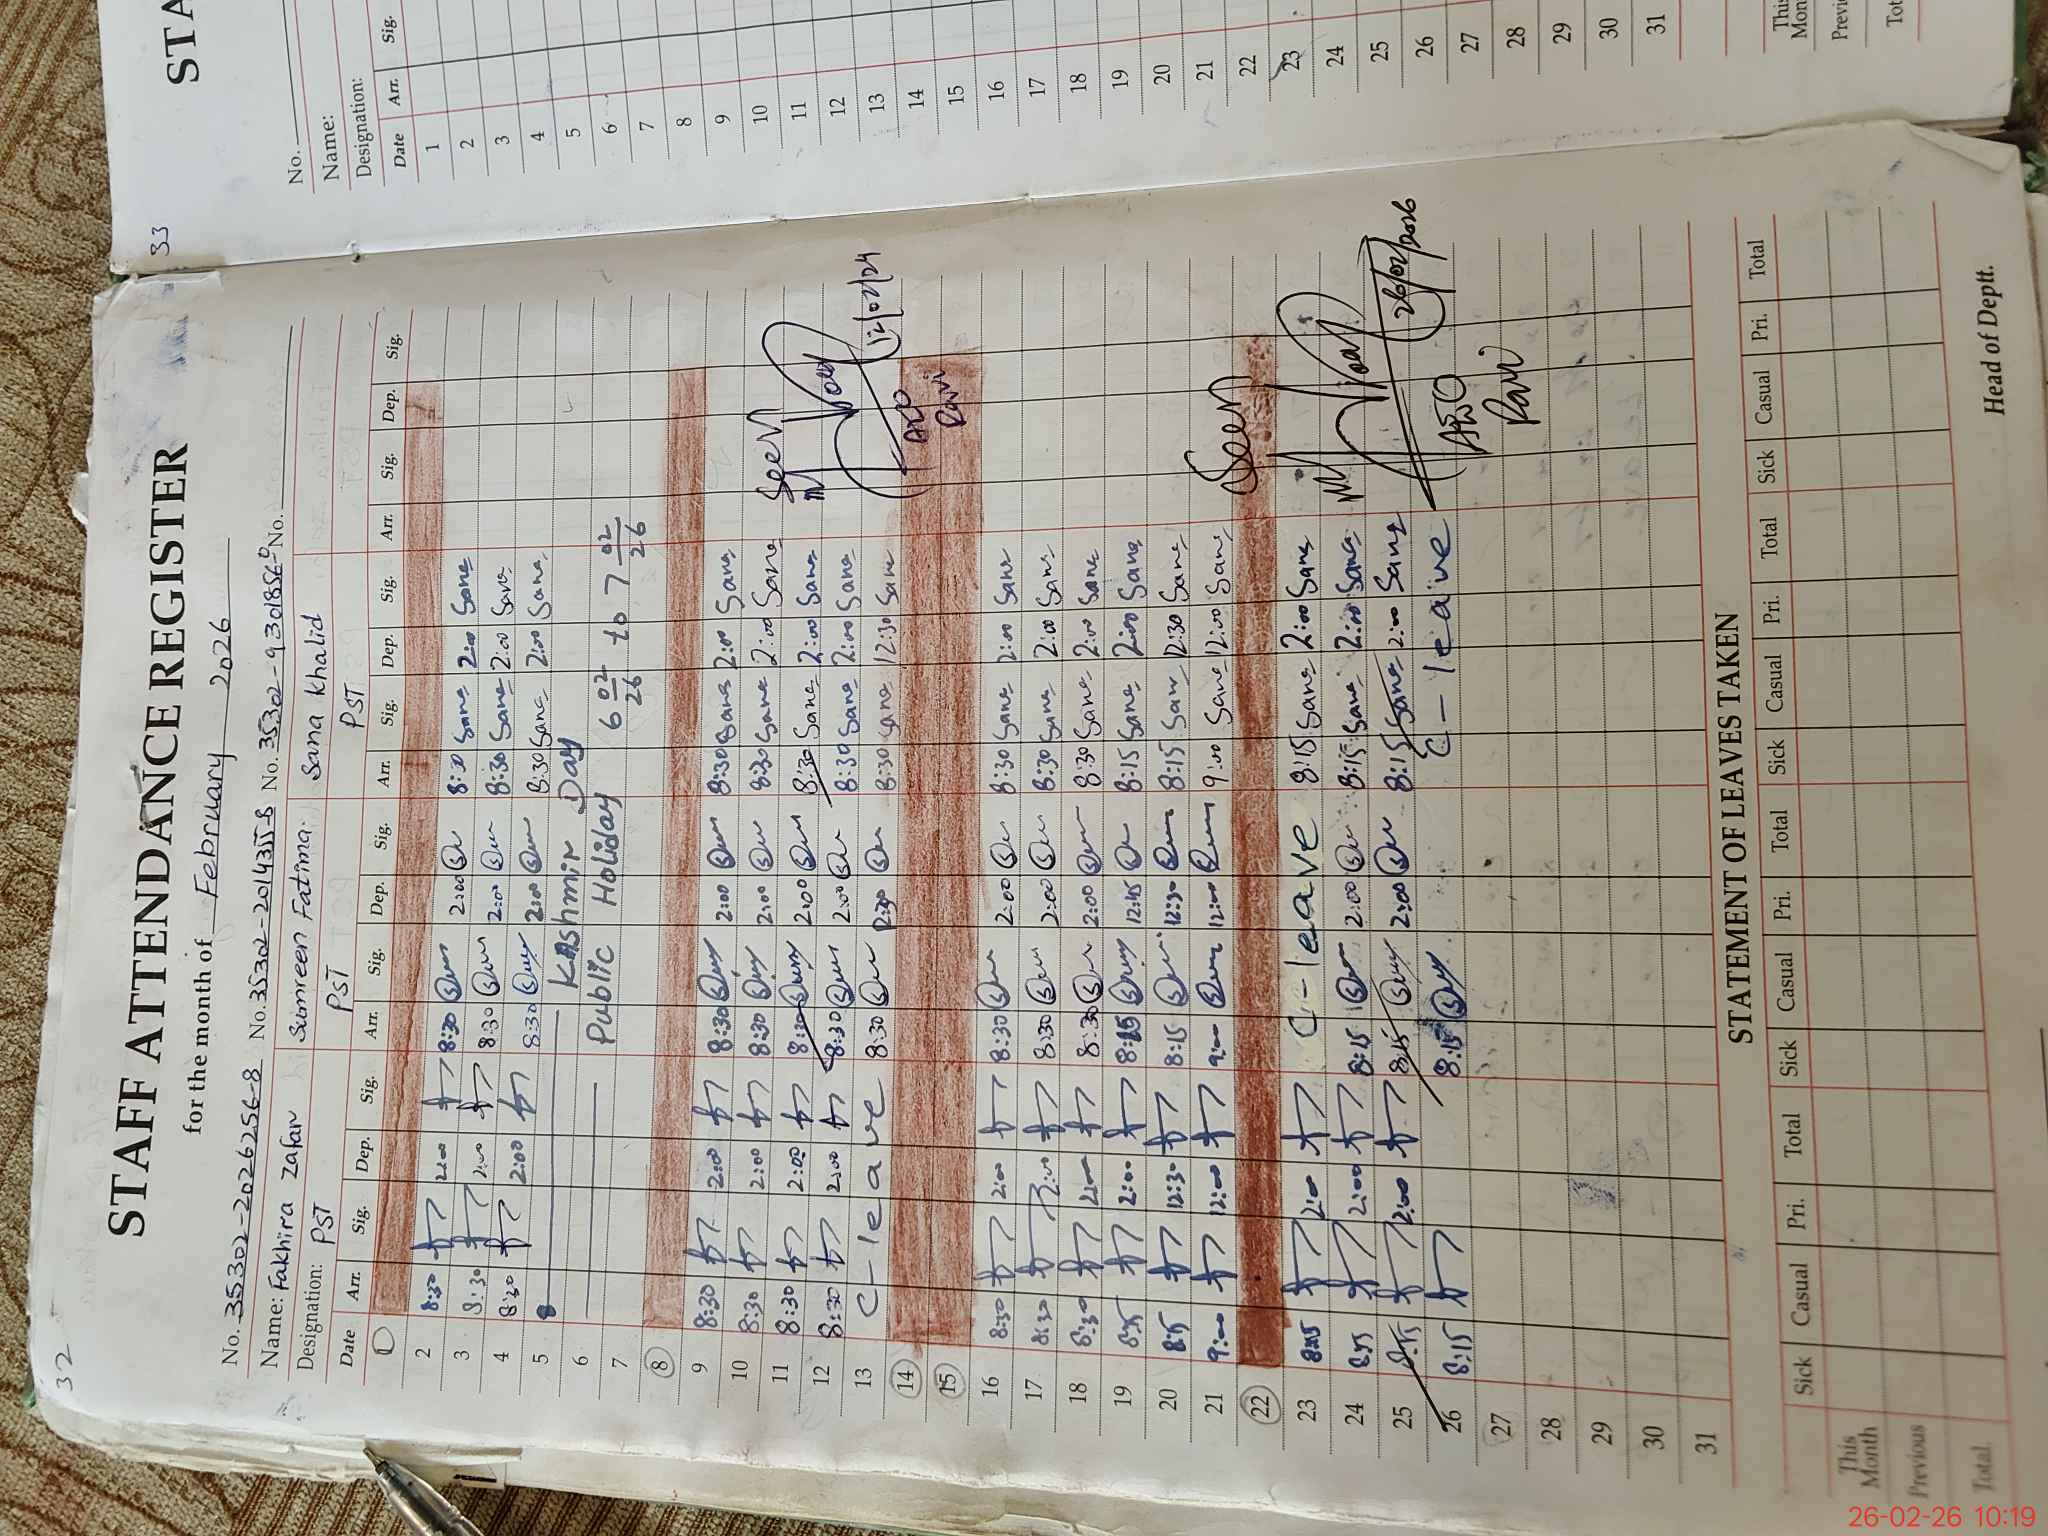 32
STAFF ATTENDANCE REGISTER
for the month of February 2026
No. 35302-2026256-8 No. No. 35302-9301856-0 No.
Name: Fakhira Zafar Simreen Fatima. Sana Khalid
Designation: PST PST PST
Date Arr. Sig. Dep. Sig. Arr. Sig. Dep. Sig. Arr. Sig. Dep. Sig. Arr. Sig. Dep. Sig.
1
2 8:30 2:00 8:30 2:00 8:30 Sana 2:00 Sana
3 8:30 2:00 8:30 2:00 8:30 Sana 2:00 Sana
4 8:30 2:00 8:30 2:00 8:30 Sana 2:00 Sana
5 Kashmir Day
6 Public Holiday 6 02/26 to 7 02/26
7
8
9 8:30 2:00 8:30 2:00 8:30 Sana 2:00 Sana
10 8:30 2:00 8:30 2:00 8:30 Sana 2:00 Sana
11 8:30 2:00 8:30 2:00 8:30 Sana 2:00 Sana Seen
12 8:30 2:00 8:30 2:00 8:30 Sana 2:00 Sana
13 C-leave 8:30 12:30 8:30 Sana 12:30 Sana
14 AEO
15 Ravi
16 8:30 2:00 8:30 2:00 8:30 Sana 2:00 Sana
17 8:30 2:00 8:30 2:00 8:30 Sana 2:00 Sana
18 8:30 2:00 8:30 2:00 8:30 Sana 2:00 Sana
19 8:15 2:00 8:15 12:45 8:15 Sana 2:00 Sana
20 8:15 12:30 8:15 12:30 8:15 Sana 12:30 Sana
21 9:00 12:00 9:00 12:00 9:00 Sana 12:00 Sana
22 Seen
23 8:15 2:00 C-leave 8:15 Sana 2:00 Sana
24 8:15 2:00 8:15 2:00 8:15 Sana 2:00 Sana
25 8:15 2:00 8:15 2:00 8:15 Sana 2:00 Sana 26/02/2026
26 8:15 8:15 C-leave AEO
27 Ravi
28
29
30
31
STATEMENT OF LEAVES TAKEN
Sick Casual Pri. Total Sick Casual Pri. Total Sick Casual Pri. Total Sick Casual Pri. Total
This Month
Previous
Total
Head of Deptt.
33
STA
No.
Name:
Designation:
Date Arr. Sig.
1
2
3
4
5
6
7
8
9
10
11
12
13
14
15
16
17
18
19
20
21
22
23
24
25
26
27
28
29
30
31
This
Mon
Previ
Tot
26-02-26 10:19